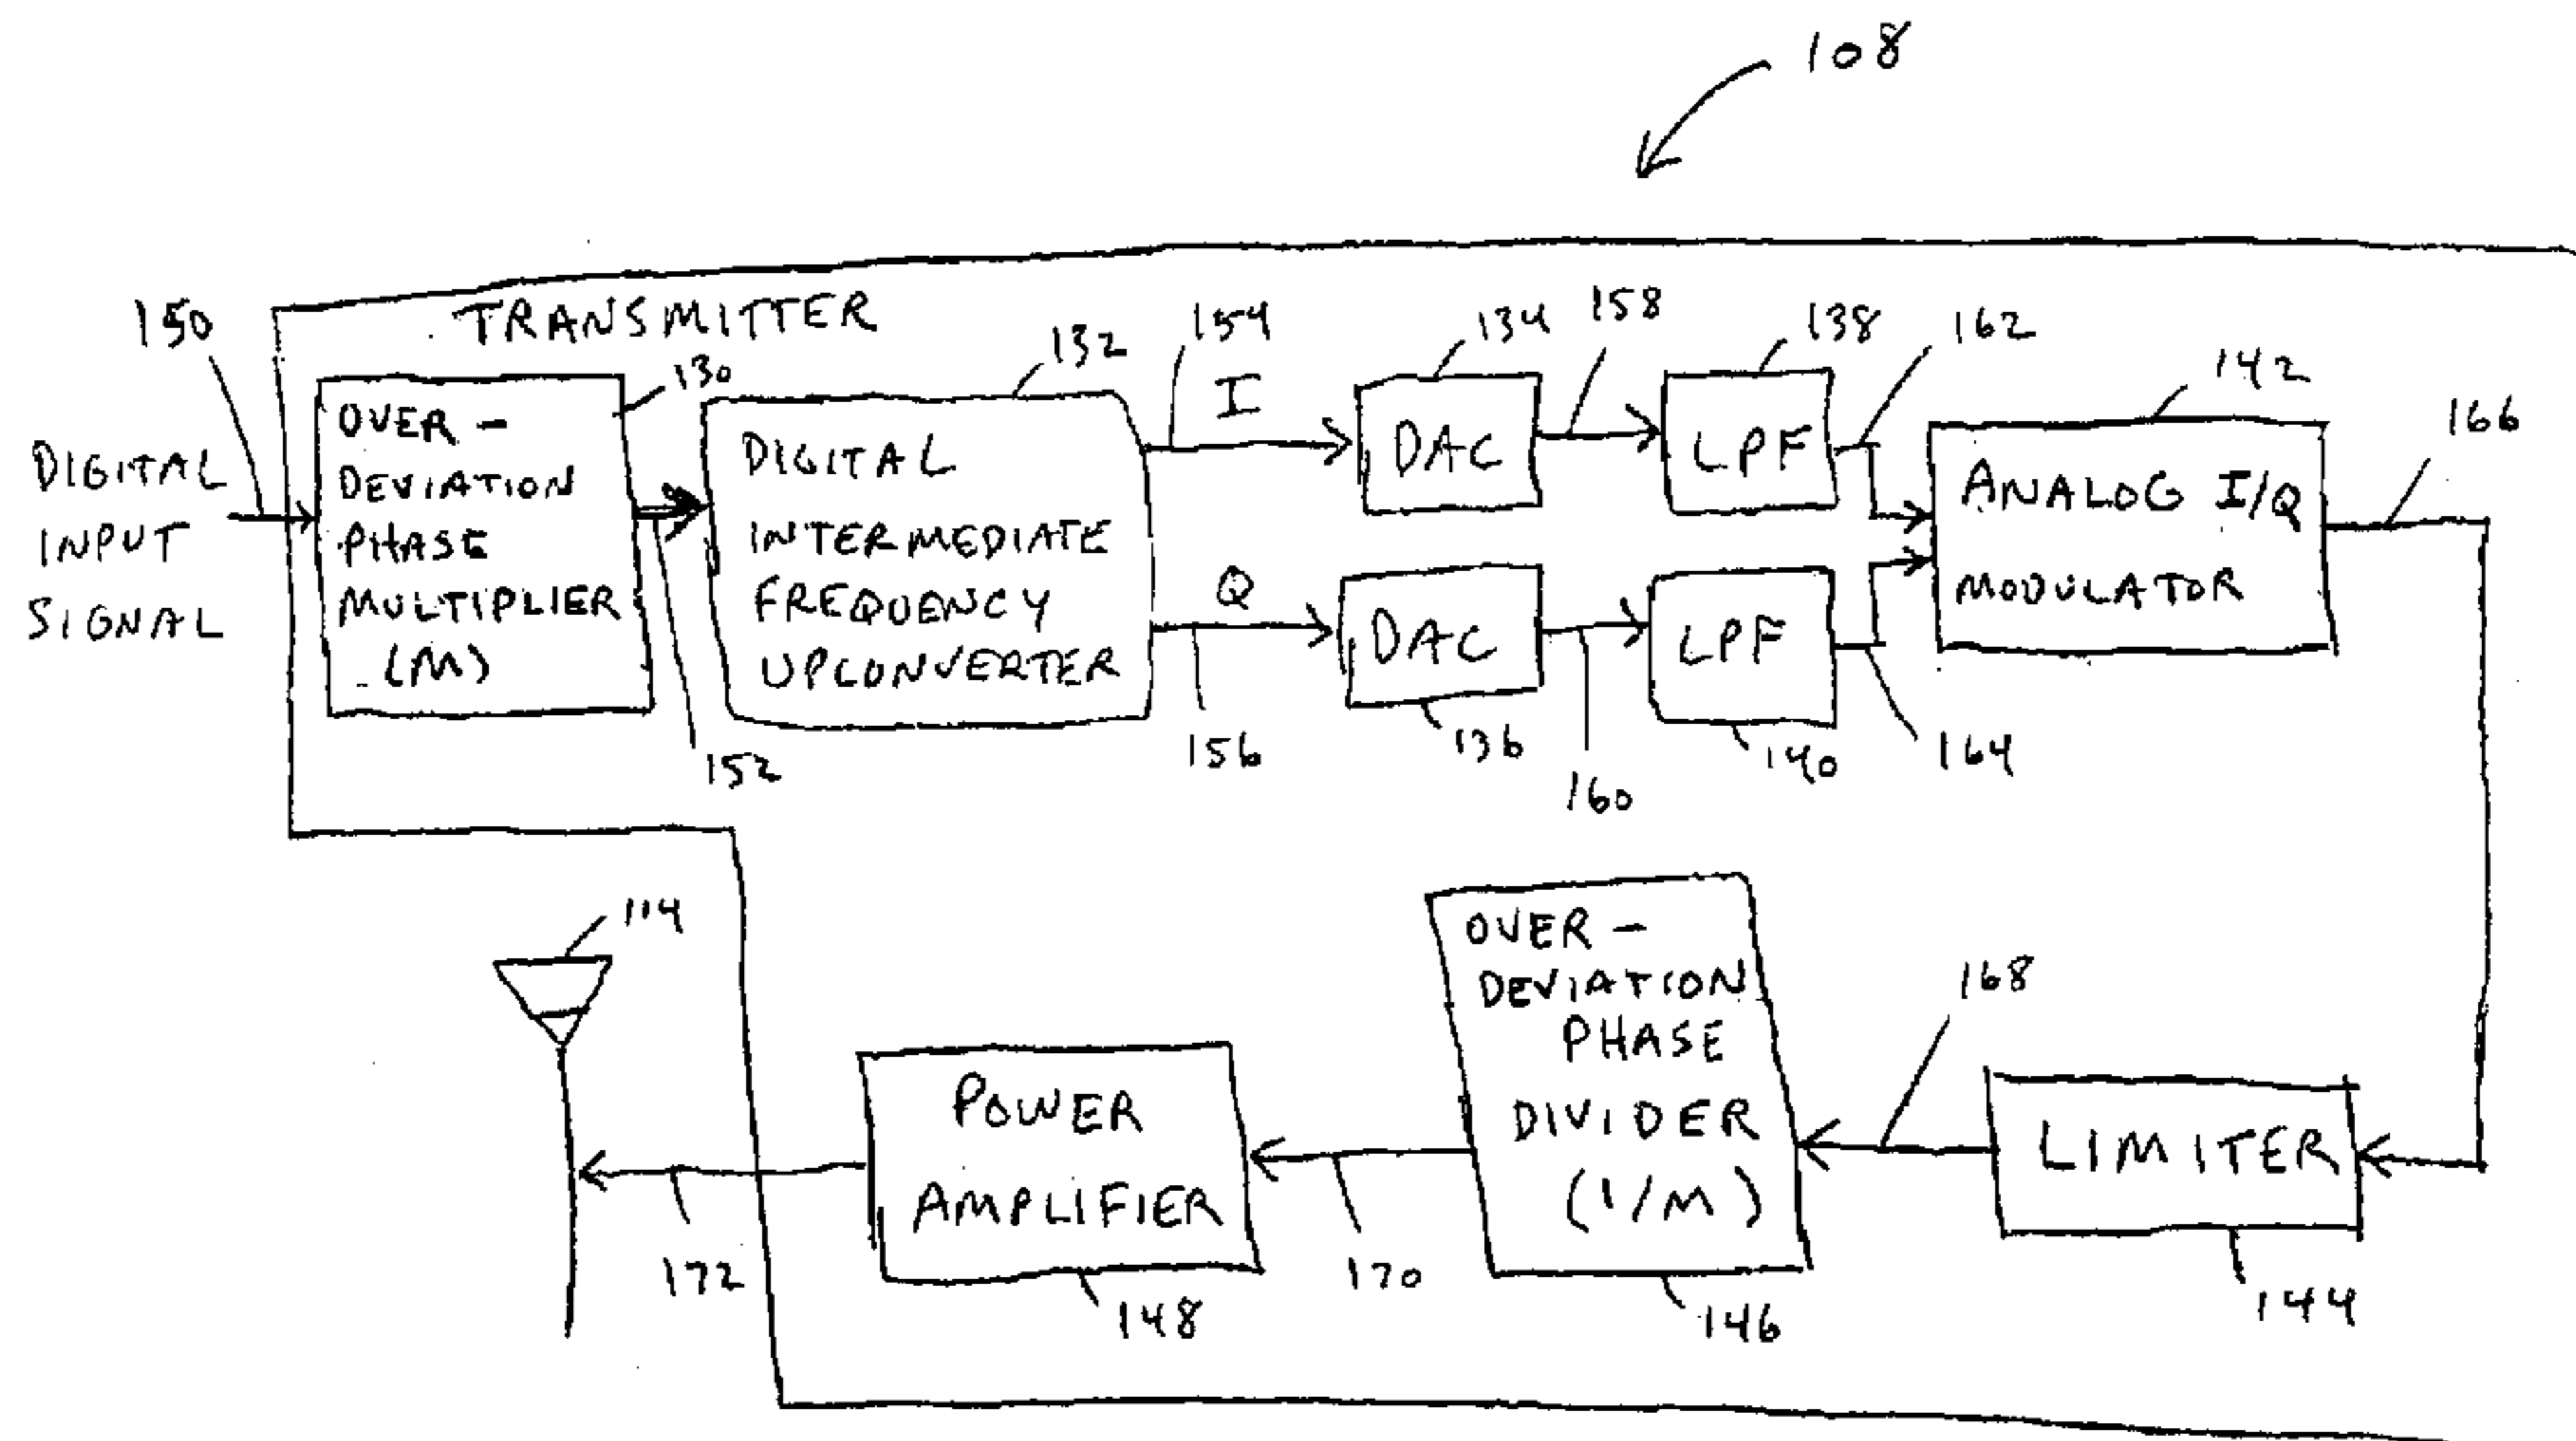 108
TRANSMITTER
150
DIGITAL
INPUT
SIGNAL
130
OVER -
DEVIATION
PHASE
MULTIPLIER
(M)
152
132
DIGITAL
INTERMEDIATE
FREQUENCY
UPCONVERTER
154
I
Q
156
134
DAC
158
DAC
136
160
138
LPF
162
LPF
140
164
142
ANALOG I/Q
MODULATOR
166
114
172
POWER
AMPLIFIER
148
170
OVER -
DEVIATION
PHASE
DIVIDER
(1/M)
146
168
LIMITER
144